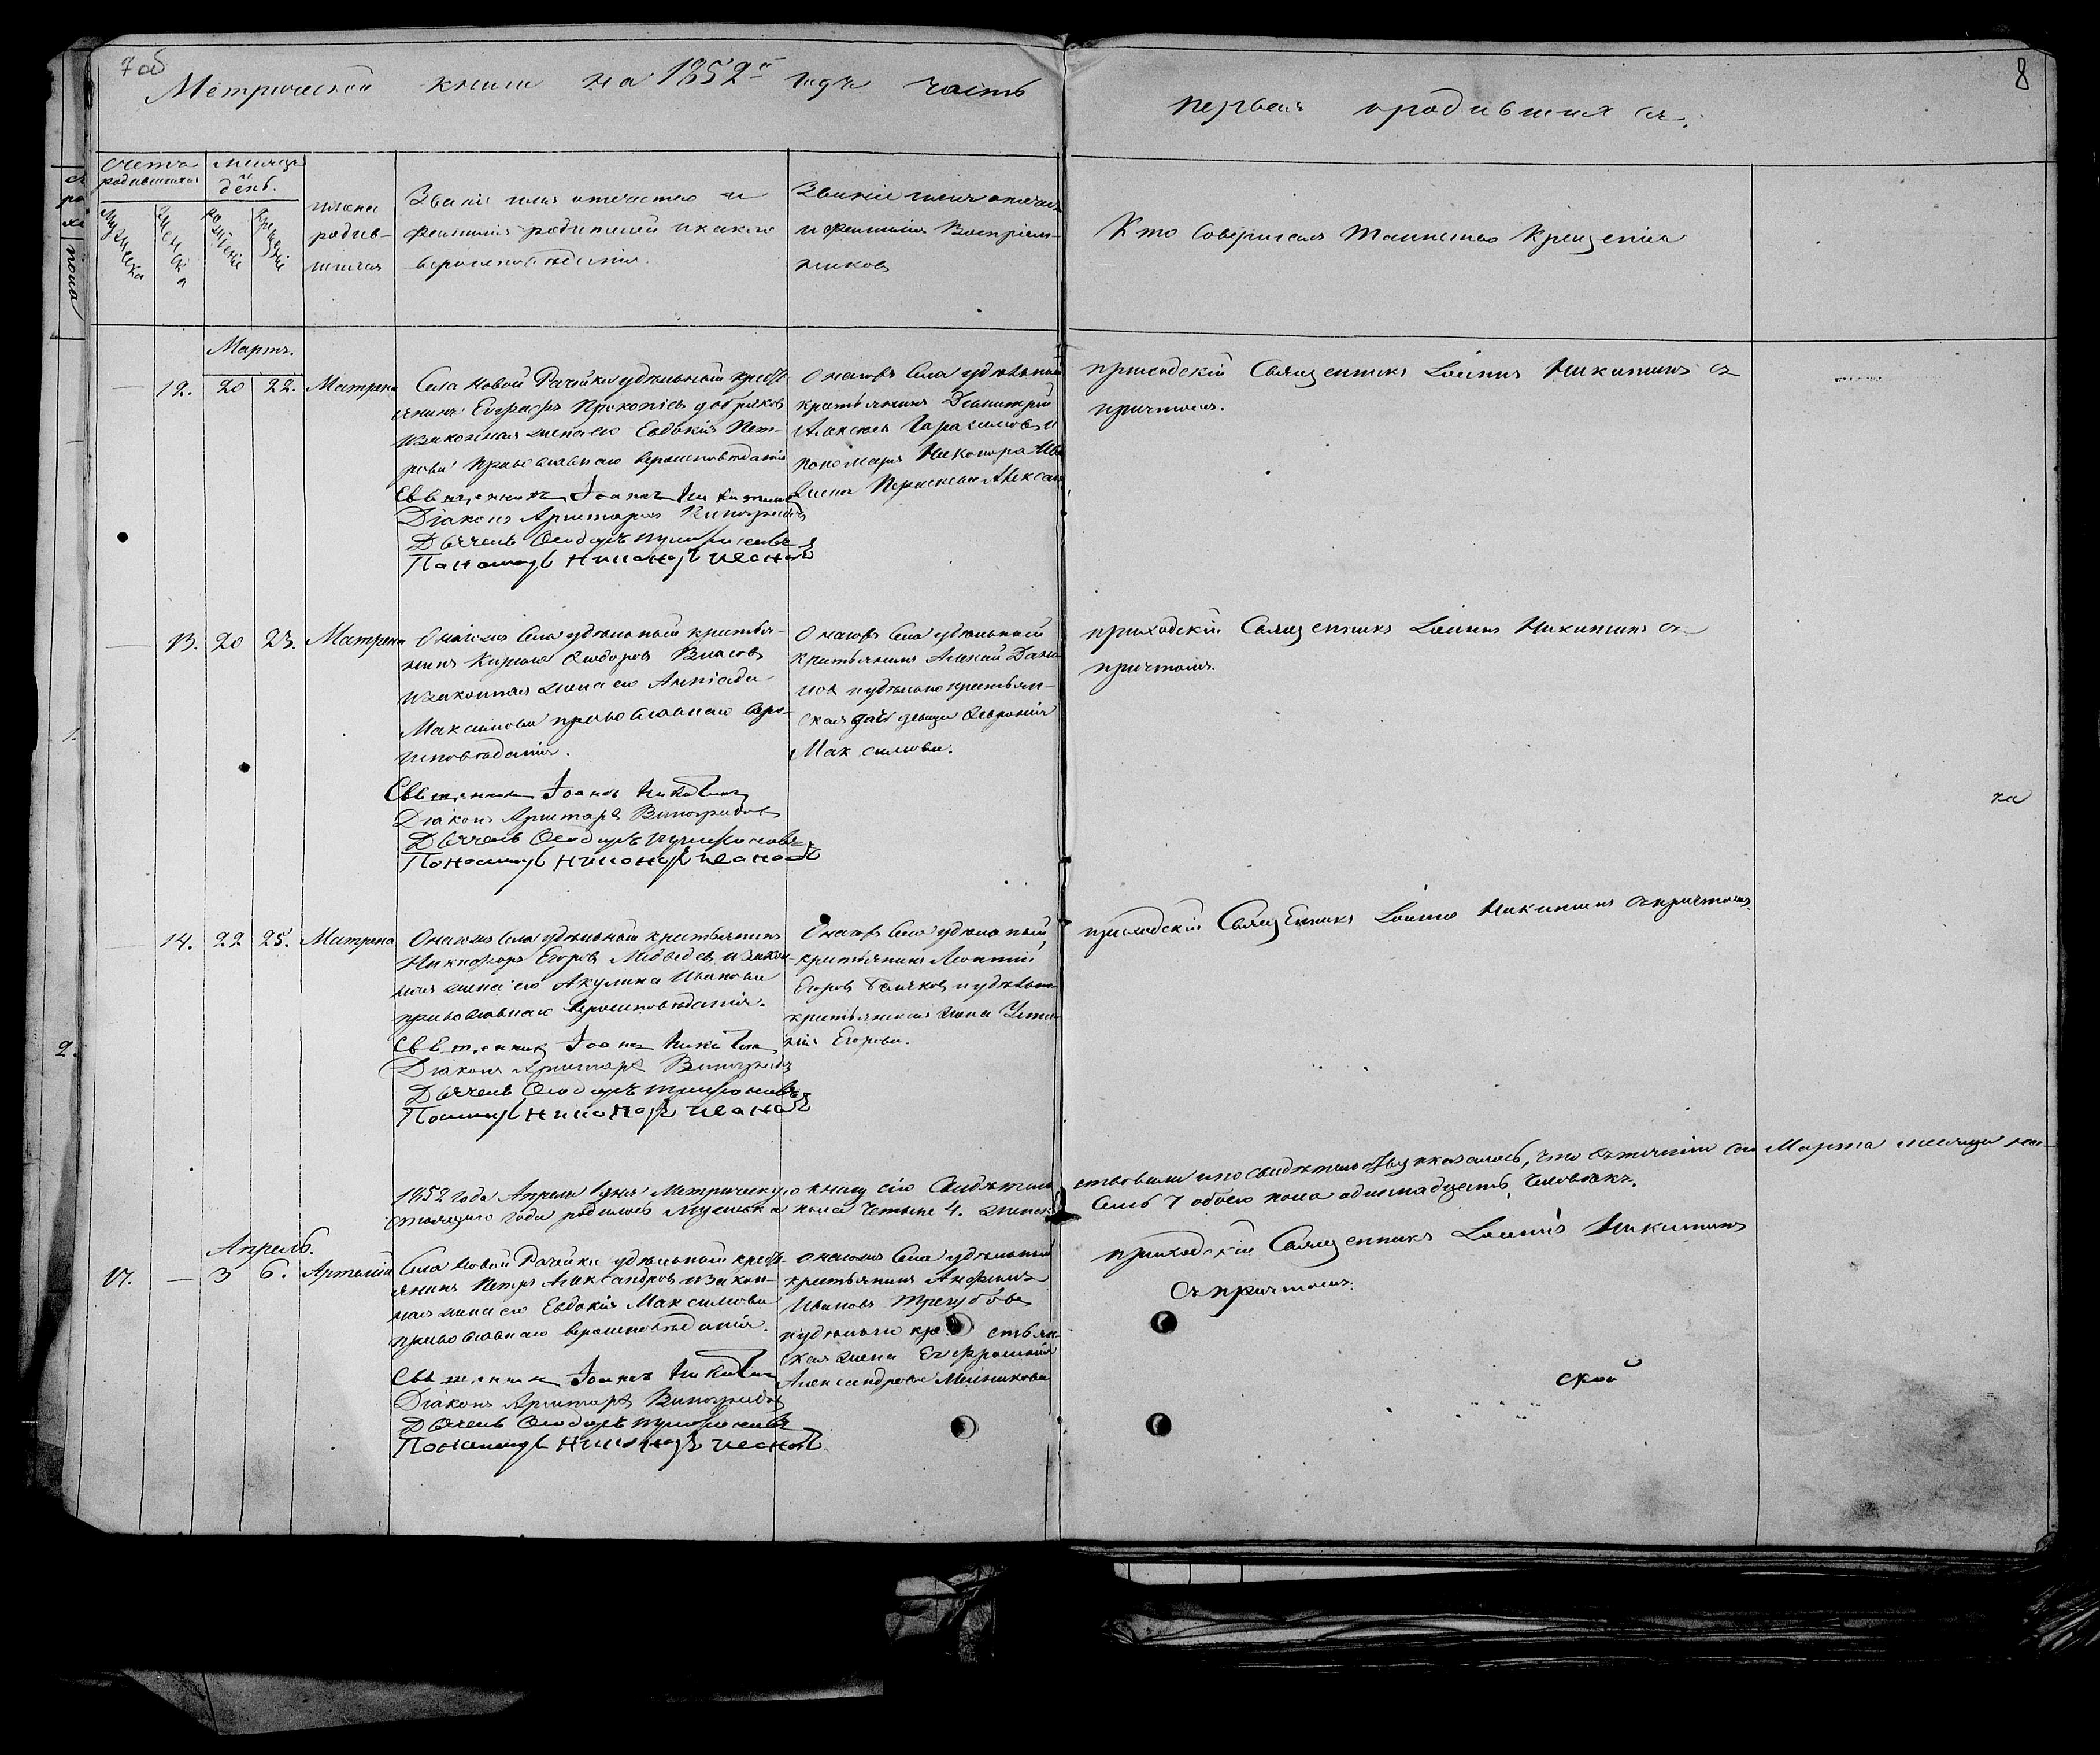 7об
Метрической книги на 1852й годъ часть
первая о родившихся.
8
Счетъ родившихся
Мѣсяцъ и день.
мужеска
женска
рожденiе
крещенiе
имена
родив-
шихся
Званiе имя отчество и
фамилiя родителей и какого
вѣроисповѣданiя.
Званiе имя отчест
и фамилiя Воспрiем-
никовъ
Кто Совершалъ Таинство Крещенiя
Мартъ.
— 12. 20 22. Матрена
Села Новой Рачейки удѣльный крест
янинъ Евграфъ Прокопiевъ
и законная жена его Евдокiя Пет-
рова православнаго вѣроисповѣданiя
Священникъ Iоаннъ Никитинъ
Дiаконъ Аристархъ Виноградовъ
Дьячекъ Ѳеодоръ
Пономарь Никаноръ Ивановъ
Онагожъ Села удѣльный
крестьянинъ Димитрiй
Алексѣевъ Гарасимовъ и
пономаря Никонора Ива
жена Параскева Алексан
приходскiй Священникъ Iоаннъ Никитинъ съ
причтомъ.
— 13. 20 23. Матрена
Онагожъ Села удѣльный крестья-
нинъ Кирила Ѳеодоровъ Власовъ
и законная жена его
Максимова православнаго вѣро-
исповѣданiя.
Священникъ Iоаннъ Никитинъ
Дiаконъ Аристархъ Виноградовъ
Дьячекъ Ѳеодоръ
Пономарь Никаноръ Ивановъ
Онагожъ Села удѣльный
крестьянинъ Алексѣй Дани
ловъ и удѣльно крестьян-
ская дочь девица Ѳевронiя
Максимова.
приходскiй Священникъ Iоаннъ Никитинъ съ
причтомъ.
ка
— 14. 22 25. Матрена
Онагожъ Села удѣльный крестьянинъ
Никифоръ Егоровъ Медведевъ и закон-
ная жена его Акулина Иванова
православнаго вѣроисповѣданiя.
Священникъ Iоаннъ Никитинъ
Дiаконъ Аристархъ Виноградовъ
Дьячекъ Ѳеодоръ
Пономарь Никаноръ Ивановъ
Онагожъ Села удѣльный
крестьянинъ Леонтiй
Егоровъ и удѣльно
крестьянская жена Усти
нiя Егорова.
приходскiй Священникъ Iоаннъ Никитинъ съ причтомъ
1852 года Апреля 1 дня Метрическую книгу сiю Свидѣтель
ствовали и по свидѣтельству оказалось, что въ теченiи сего Марта месяца на-
стоящаго года родилось Мужеска пола Четыре 4. женск
Семь 7 обоего пола одинадцать Человѣкъ.
Апрель.
17. — 3 6. Артемiй
Села Новой Рачейки удѣльный крест-
янинъ Петръ Александровъ и закон-
ная жена его Евдокiя Максимова
православнаго вѣроисповѣданiя.
Священникъ Iоаннъ Никитинъ
Дiаконъ Аристархъ Виноградовъ
Дьячекъ Ѳеодоръ
Пономарь Никаноръ Ивановъ
Онагожъ Села удѣльный
крестьянинъ
Ивановъ Трегубовъ
и удѣльного кре стьян-
ская жена Евфросинiя
Александрова Мельникова
приходскiй Священникъ Iоаннъ Никитинъ
съ причтомъ.
ской